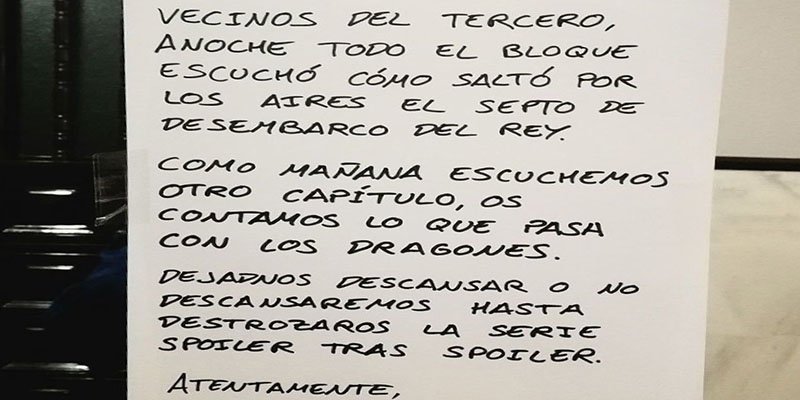 VECINOS DEL TERCERO,
ANOCHE TODO EL BLOQUE
ESCUCHÓ CÓMO SALTÓ POR
LOS AIRES EL SEPTO DE
DESEMBARCO DEL REY.
COMO MAÑANA ESCUCHEMOS
OTRO CAPÍTULO, OS
CONTAMOS LO QUE PASA
CON LOS DRAGONES.
DEJADNOS DESCANSAR O NO
DESCANSAREMOS HASTA
DESTROZAROS LA SERIE
SPOILER TRAS SPOILER.
ATENTAMENTE,